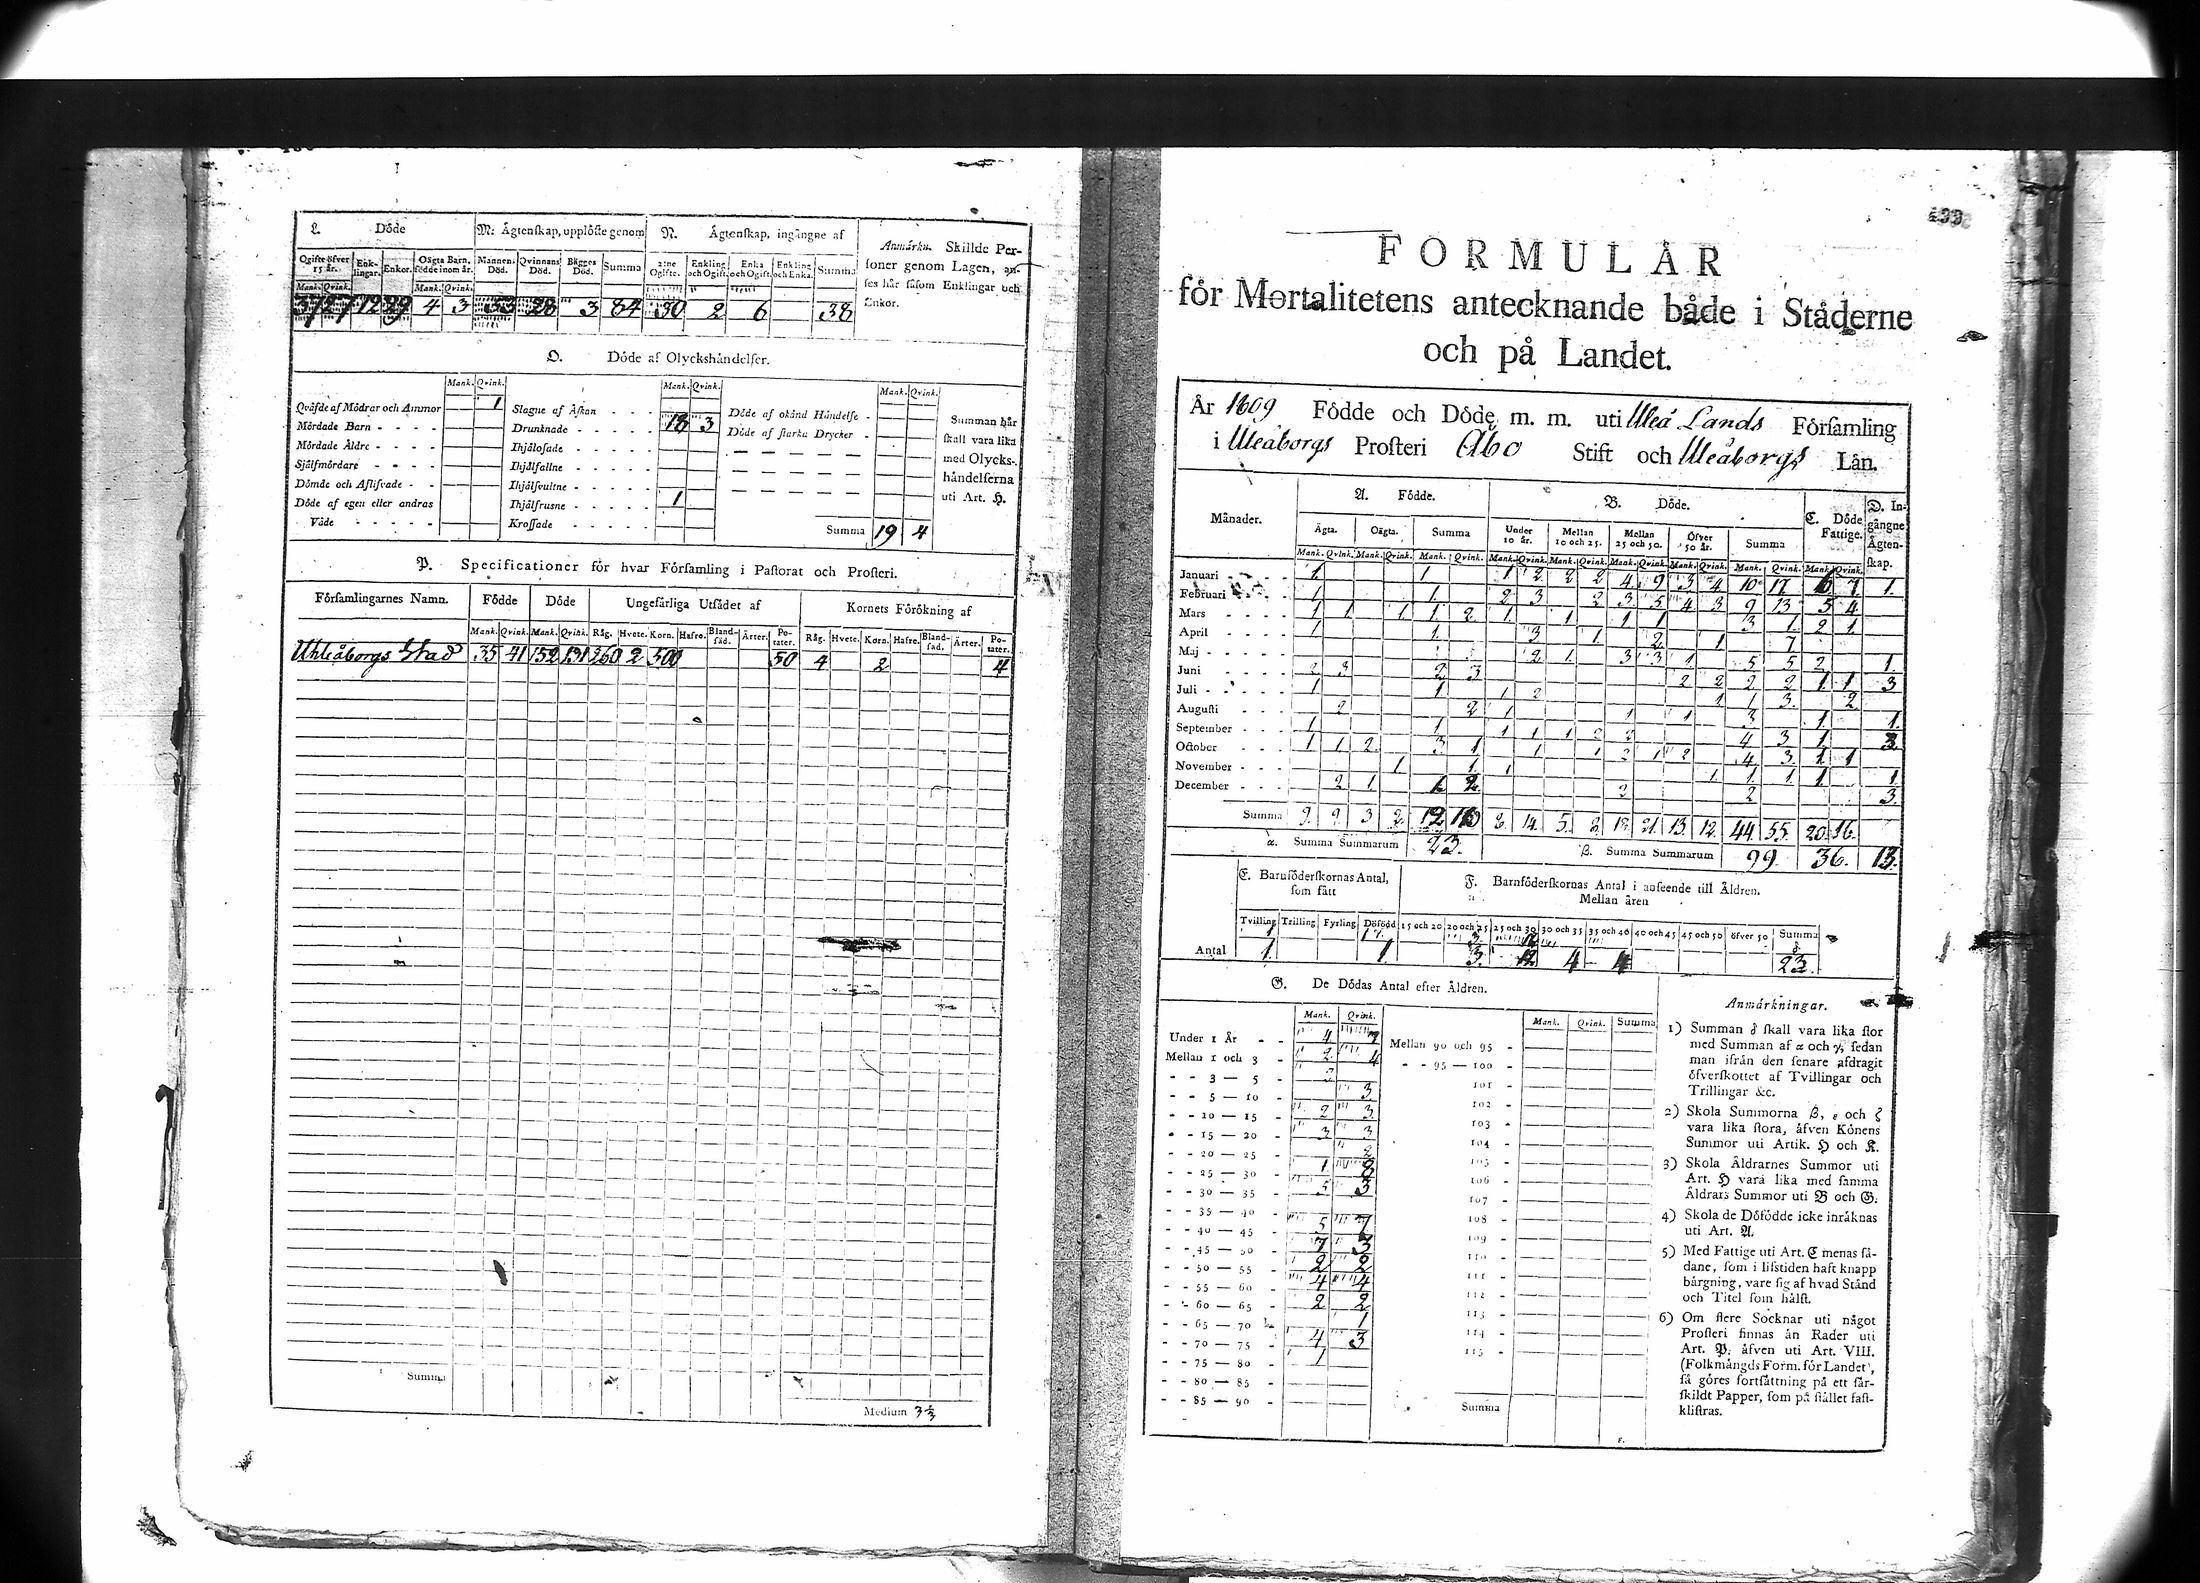 L. Döde
M. Ägtenskap, upplöste genom
N. Ägtenskap, ingångne af
Anmärkn. Skillde Personer genom Lagen, anses här såsom Enklingar och Enkor.
Ogifte öfver 15 år. Enklingar. Enkor. Oägta Barn, födde inom år. Mannens Död. Qvinnans Död. Bägges Död. Summa 2:ne Ogifte. Enkling och Ogift. Enka och Ogift. Enkling och Enka. Summa
Mank. Qvink. Mank. Qvink.
37 27 12 29 4 3 53 28 3 84 30 2 6 38
O. Döde af Olyckshändelser.
Mank. Qvink. Mank. Qvink. Mank. Qvink.
Qväfde af Mödrar och Ammor 1
Mördade Barn
Mördade Äldre
Självmördare
Dömde och Aflifvade
Döde af egen eller andras Våde
Slagne af Åskan
Drunknade 18 3
Ihjälosade
Ihjälfallne
Ihjälsvultne
Ihjälfrusne 1
Krossade
Döde af okänd Händelse
Döde af starka Drycker
Summa 19 4
Summan här
skall vara lika
med Olycks-
händelserna
uti Art. H.
P. Specificationer för hvar Församling i Pastorat och Prosteri.
Församlingarnes Namn. Födde Döde Ungefärliga Utsädet af Kornets Förökning af
Mank. Qvink. Mank. Qvink. Råg. Hvete. Korn. Hafre. Blandsäd. Ärter. Potater. Råg. Hvete. Korn. Hafre. Blandsäd. Ärter. Potater.
Uhleåborgs Stad 35 41 152 131 260 2 500 50 4 2 4
Summa
Medium 3 1/3
FORMULÄR
för Mortalitetens antecknande både i Städerne
och på Landet.
År 1809 Födde och Döde m. m. uti Uleå Lands Församling
i Uleåborgs Prosteri Åbo Stift och Uleåborgs Län.
Månader. A. Födde. B. Döde. C. Döde Fattige. D. Ingångne Ägtenskap.
Ägta. Oägta. Summa Under 10 år. Mellan 10 och 25. Mellan 25 och 50. Öfver 50 år. Summa
Mank. Qvink. Mank. Qvink. Mank. Qvink. Mank. Qvink. Mank. Qvink. Mank. Qvink. Mank. Qvink. Mank. Qvink. Mank. Qvink.
Januari 1 1 1 2 2 2 4 9 3 4 10 17 6 7 1.
Februari 1 1 2 3 2 3 5 4 3 9 13 5 4
Mars 1 1 1 1 2 1 1 1 1 3 1 2 1
April 1 1 3 1 2 1 7
Maj 2 1 3 3 1 5 5 2 1
Juni 2 3 2 3 2 2 2 2 1 1 3
Juli 1 1 1 2 1 1 3 2
Augusti 2 2 1 1 1 3 1 1
September 1 1 1 1 1 2 2 4 3 1 3
October 1 1 2 3 1 1 1 2 1 2 4 3 1 1
November 1 1 1 1 1 1 1 1
December 2 1 1 2 2 2 3
Summa 9. 9. 3 2. 12 6. 14. 5. 21. 13. 12. 44. 55. 20. 16.
α. Summa Summarum 23.
β. Summa Summarum 99 36. 13.
E. Barnföderskornas Antal, som fått
F. Barnföderskornas Antal i anseende till Åldren.
Mellan åren
Tvilling Trilling Fyrling Dödfödd 15 och 20 20 och 25 25 och 30 30 och 35 35 och 40 40 och 45 45 och 50 öfver 50 Summa
Antal 1. 1 3. 4 4 23
G. De Dödas Antal efter Åldren.
Mank. Qvink. Mank. Qvink. Summa
Under 1 År 4 7
Mellan 1 och 3 2 4
3 — 5 2
5 — 10 3
10 — 15 2 3
15 — 20 3 3
20 — 25 2
25 — 30 1 8
30 — 35 5 3
35 — 40
40 — 45 5 7
45 — 50 7 3
50 — 55 2 2
55 — 60 4 4
60 — 65 2 2
65 — 70 1
70 — 75 4 3
75 — 80 1
80 — 85
85 — 90
Mellan 90 och 95
95 — 100
101
102
103
104
105
106
107
108
109
110
111
112
113
114
115
Summa
Anmärkningar.
1) Summan δ skall vara lika stor
med Summan af α och γ, sedan
man ifrån den senare afdragit
öfverskottet af Tvillingar och
Trillingar &c.
2) Skola Summorna β, ε och ζ
vara lika stora, äfven Könens
Summor uti Artik. H och K.
3) Skola Åldrarnes Summor uti
Art. H vara lika med samma
Åldrars Summor uti B och G.
4) Skola de Döfödde icke inräknas
uti Art. A.
5) Med Fattige uti Art. C menas så-
dane, som i lifstiden haft knapp
bärgning, vare sig af hvad Stånd
och Titel som hälst.
6) Om flere Socknar uti något
Prosteri finnas än Rader uti
Art. P. äfven uti Art. VIII.
(Folkmängds Form. för Landet),
så göres fortsättning på ett sär-
skildt Papper, som på stället fast-
klistras.